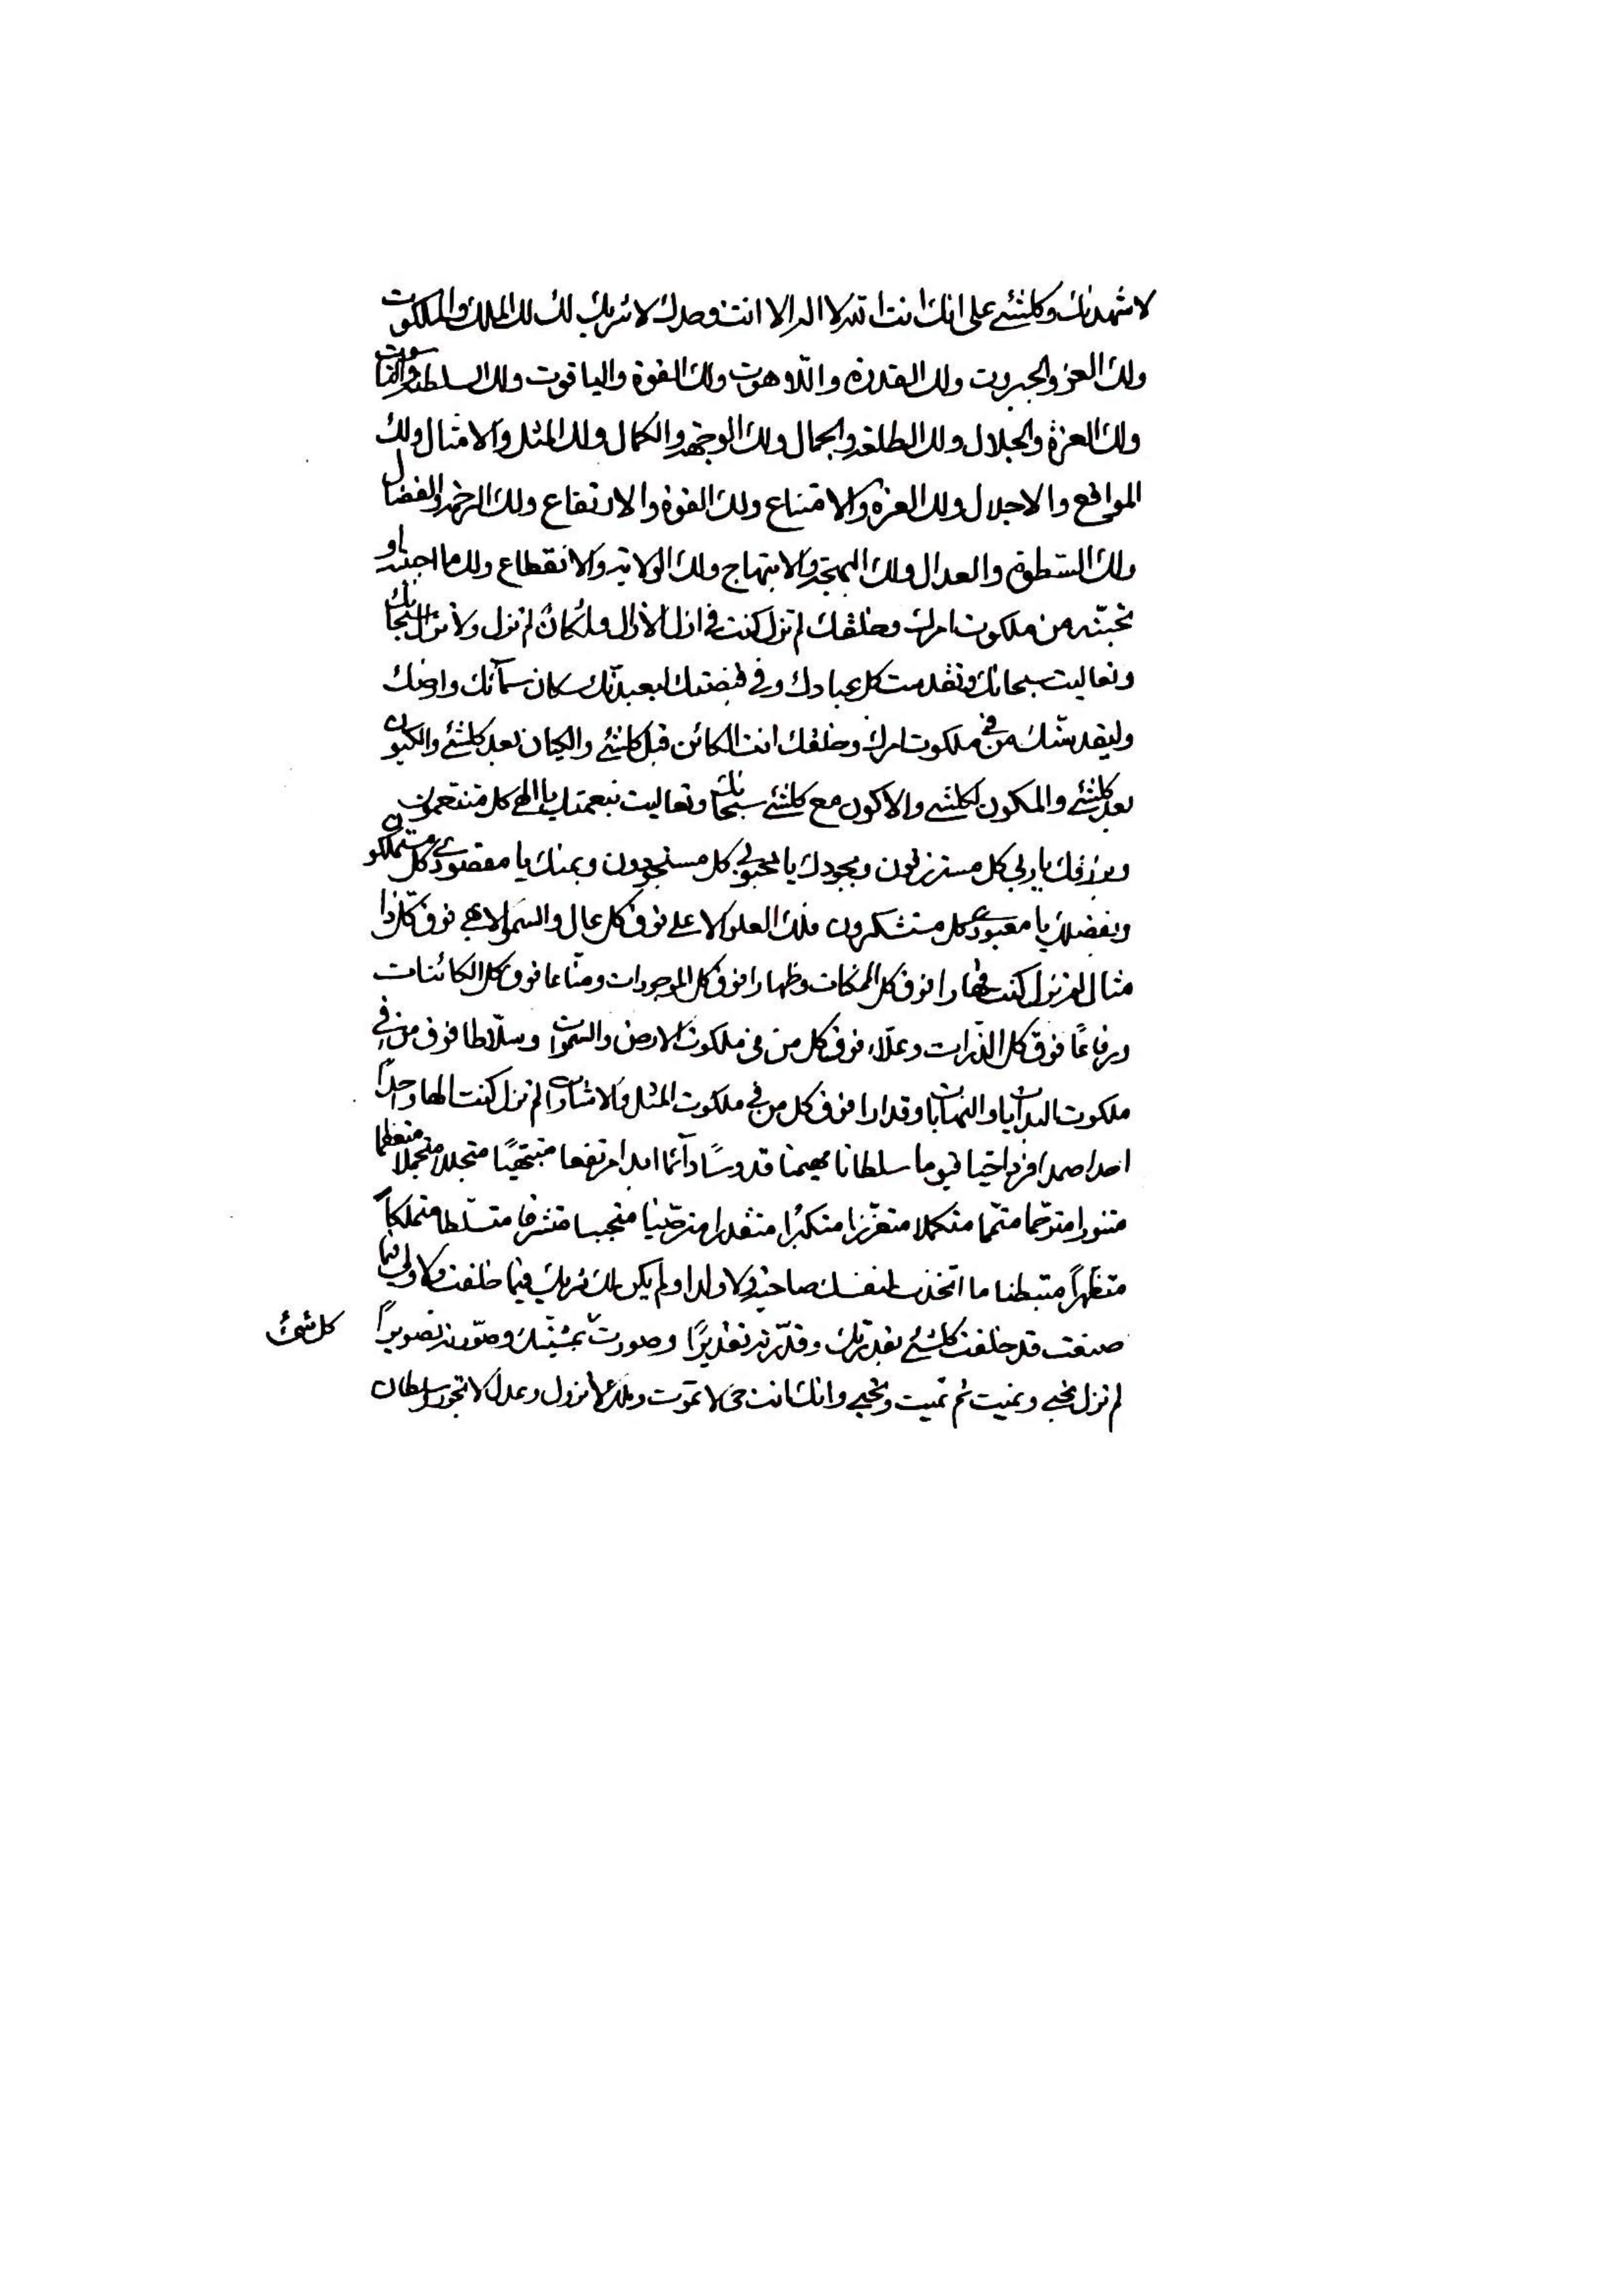 لاشهدنك وكلشئ على انك انت الله لا اله الا انت وحدك لا شريك لك لك الملك والملكوت
ولك العز والجبروت ولك القدرة واللاهوت ولك القوة والياقوت ولك السلطنة والناسوت
ولك العزة والجلال ولك الطلعة والجمال ولك الوجهة والكمال ولك المثل والامثال ولك
المواقع والاجلال ولك العزة والامتناع ولك القوة والارتفاع ولك الرحمة والفضال
ولك السطوة والعدال ولك البهجة والابتهاج ولك الولاية والانقطاع ولك ما احببته او
تحبنه من ملكوت امرك وخلقك لم تزل كنت في ازل الازال ولم تزل ولا تزال سبحانك
وتعاليت سبحانك وتقدست كل عبادك وفي قبضتك ليعبدنك سكان سمآئك وارضك
وليقدسنك من في ملكوت امرك وخلقك انت الكائن قبل كلشئ والكيان بعد كلشئ والكينون
بعد كلشئ والمكون لكلشئ والاكون مع كلشئ سبحانك وتعاليت بنعمتك يا الهي كل متنعمون
وبرزقك يا ربي كل مسترزقون وبجودك يا محبوبي كل مستجودون وبمنك يا مقصودي كل متملكون
وبفضلك يا معبودي كل متشكرون فلك العلو الاعلى فوق كل عال والسمو الابهى فوق كل ذا
مثال لم تزل كنت قهارا فوق كل الممكنات وظهارا فوق كل الموجودات ومناعا فوق كل الكائنات
ورفاعًا فوق كل الذرات وعلاء فوق كل من في ملكوت الارض والسموات وسلاطا فوق من في
ملكوت البدايات والنهايات وقدارا فوق كل من في ملكوت المثل والاشارات لم تزل كنت الها واحدًا
احدا صمدا فردا حيا قيوما سلطانا مهيمنا قدوسًا دآئما ابدا مرتفعا مبتهيًا متجللا متجملا متعظما
متنورا مترحما متتمما متكملا متعززا متكبرًا متقدرا مترضيا متحببا متشرفا متسلطا متملكاً
متظهراً متبطنا ما اتخذت لنفسك صاحبة ولا ولدا ولم يكن لك شريك فيما خلقت ولا ولي فيما
صنعت قد خلقت كلشئ بقدرتك وقدرته تقديرًا وصورت بمشيتك وصورته تصويرًا
كل شئ
لم تزل تحيي وتميت ثم تميت وتحيي وانك انت حي لا تموت وملك لا تزول وعدل لا تجور وسلطان